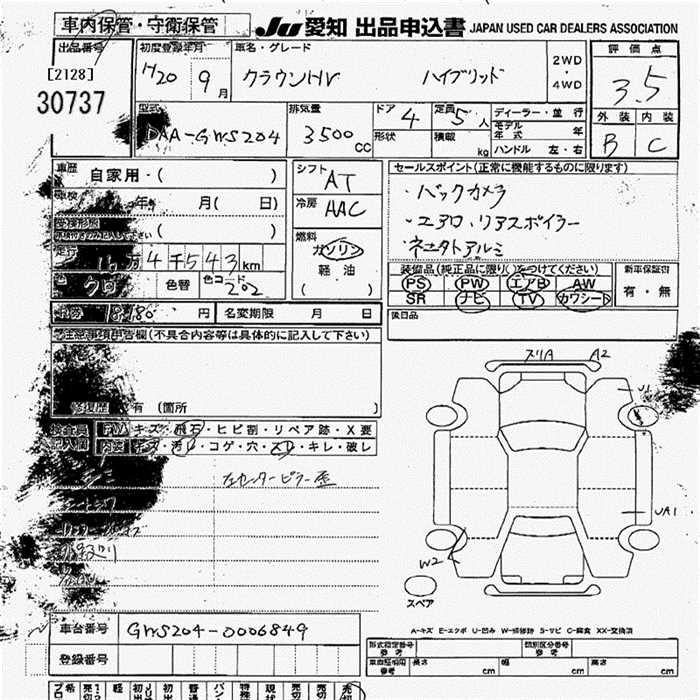 車内保管・守衛保管
JU愛知 出品申込書 JAPAN USED CAR DEALERS ASSOCIATION
出品番号
[2128]
30737
初度登録年月
H20 9月
車名・グレード
クラウンHV ハイブリッド
2WD
・
4WD
評価点
3.5
外装 内装
B C
型式
DAA-GWS204
排気量
3500cc
ドア 4
形状
定員 5人
積載 kg
ディーラー・並行
モデル年式 年
ハンドル 左・右
車歴
自家用・( )
車検
年 月( 日)
走行
万4千543km
色替
色コード 202
シフト
AT
冷房
AAC
燃料
ガソリン
軽油
( )
セールスポイント(正常に機能するものに限ります)
・バックカメラ
・エアロ、リアスポイラー
装備品(純正品に限り〇をつけてください)
PS PW エアB AW
SR ナビ TV カワシート
新車保証書
有・無
後日品
18,180円
名変期限 月 日
注意事項申告欄(不具合内容等は具体的に記入して下さい)
修復歴 有 (箇所 )
検査員記入欄
キズ・飛石・ヒビ割・リペア跡・X要
内装
汚レ・コゲ・穴・スレ・キレ・破レ
スリA A2
U1
UA1
W2
スペア
A-キズ E-エクボ U-凹み W-修補跡 S-サビ C-腐食 XX-交換済
車台番号 GWS204-0006849
登録番号
型式指定番号 参考
類別区分番号 参考
車庫証明用 参考 長さ cm 幅 cm 高さ cm